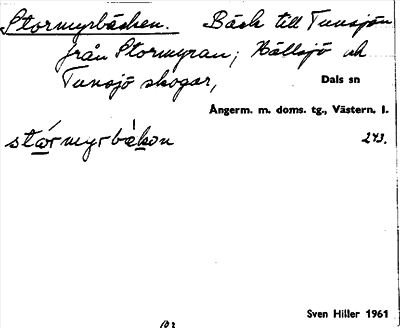 Stormyrbäcken. Bäck till Tunsjön
från Stormyran; Hällsjö och
Tunsjö skogar,
Dals sn
Ångerm. m. doms. tg., Västern. l.
stǻrmyrbäkən 243.
Sven Hiller 1961